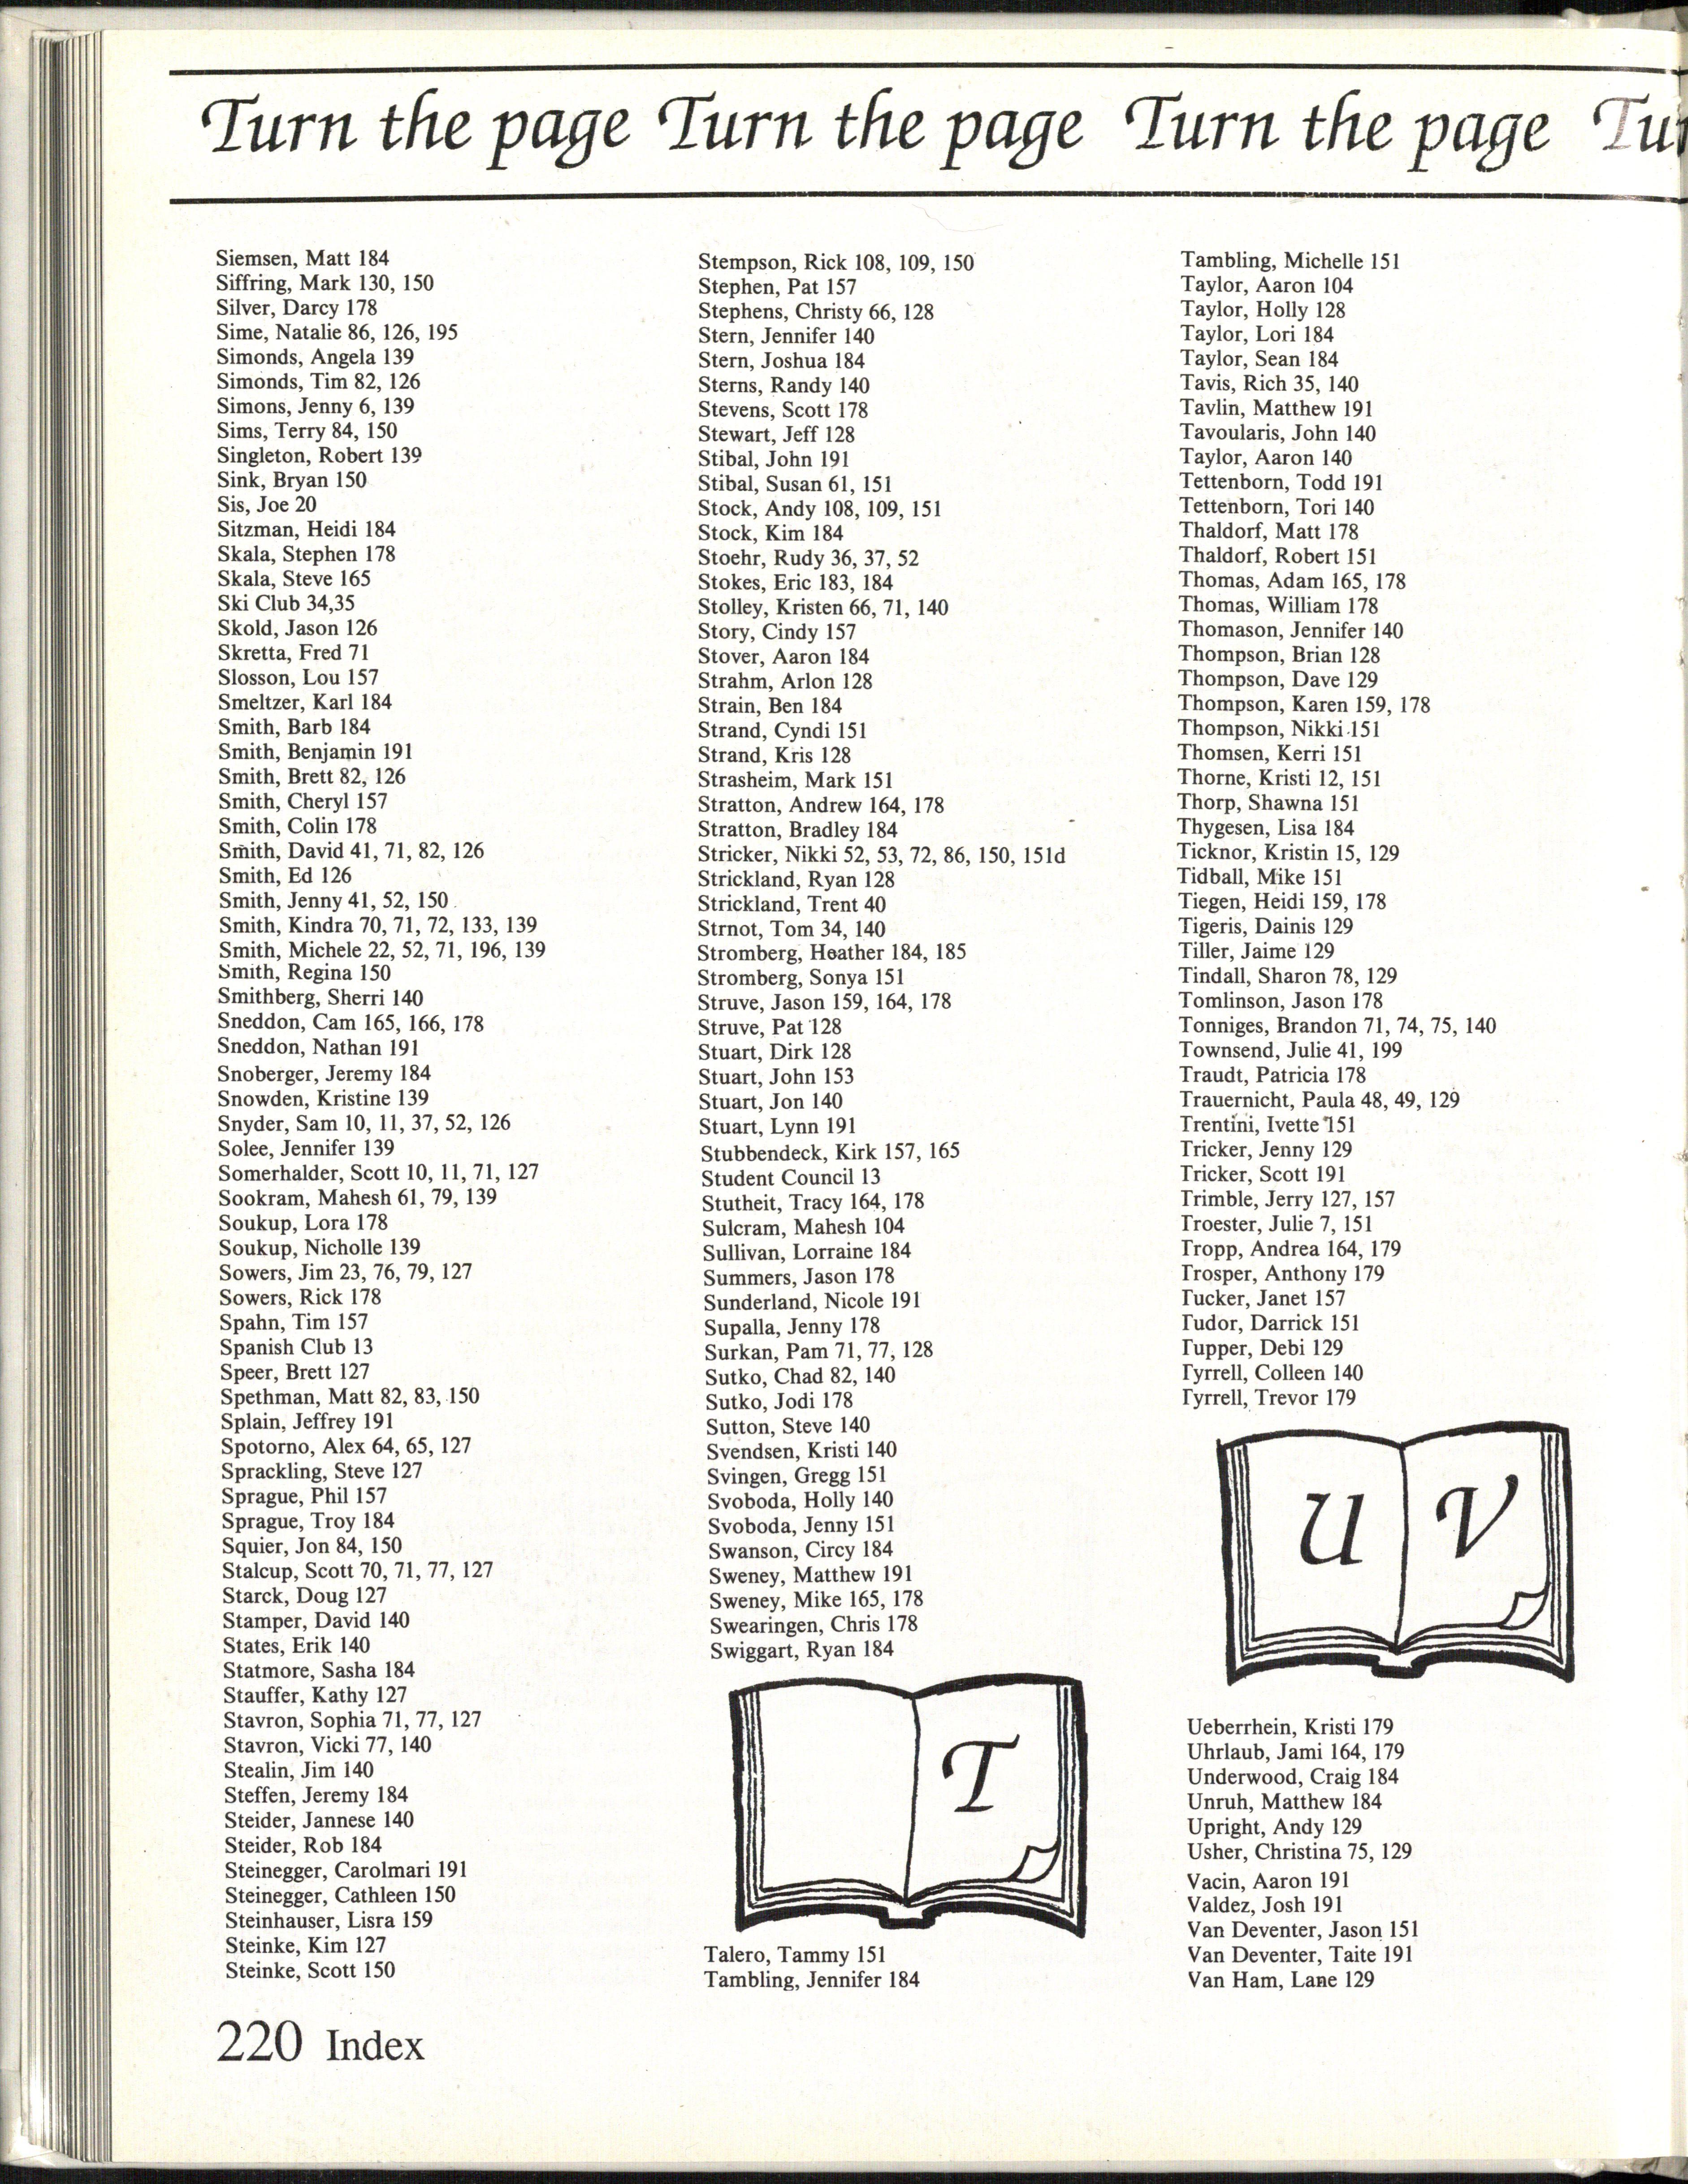 Turn the page Turn the page Turn the page Tur
Siemsen, Matt 184
Siffring, Mark 130, 150
Silver, Darcy 178
Sime, Natalie 86, 126, 195
Simonds, Angela 139
Simonds, Tim 82, 126
Simons, Jenny 6, 139
Sims, Terry 84, 150
Singleton, Robert 139
Sink, Bryan 150
Sis, Joe 20
Sitzman, Heidi 184
Skala, Stephen 178
Skala, Steve 165
Ski Club 34,35
Skold, Jason 126
Skretta, Fred 71
Slosson, Lou 157
Smeltzer, Karl 184
Smith, Barb 184
Smith, Benjamin 191
Smith, Brett 82, 126
Smith, Cheryl 157
Smith, Colin 178
Smith, David 41, 71, 82, 126
Smith, Ed 126
Smith, Jenny 41, 52, 150
Smith, Kindra 70, 71, 72, 133, 139
Smith, Michele 22, 52, 71, 196, 139
Smith, Regina 150
Smithberg, Sherri 140
Sneddon, Cam 165, 166, 178
Sneddon, Nathan 191
Snoberger, Jeremy 184
Snowden, Kristine 139
Snyder, Sam 10, 11, 37, 52, 126
Solee, Jennifer 139
Somerhalder, Scott 10, 11, 71, 127
Sookram, Mahesh 61, 79, 139
Soukup, Lora 178
Soukup, Nicholle 139
Sowers, Jim 23, 76, 79, 127
Sowers, Rick 178
Spahn, Tim 157
Spanish Club 13
Speer, Brett 127
Spethman, Matt 82, 83, 150
Splain, Jeffrey 191
Spotorno, Alex 64, 65, 127
Sprackling, Steve 127
Sprague, Phil 157
Sprague, Troy 184
Squier, Jon 84, 150
Stalcup, Scott 70, 71, 77, 127
Starck, Doug 127
Stamper, David 140
States, Erik 140
Statmore, Sasha 184
Stauffer, Kathy 127
Stavron, Sophia 71, 77, 127
Stavron, Vicki 77, 140
Stealin, Jim 140
Steffen, Jeremy 184
Steider, Jannese 140
Steider, Rob 184
Steinegger, Carolmari 191
Steinegger, Cathleen 150
Steinhauser, Lisra 159
Steinke, Kim 127
Steinke, Scott 150
Stempson, Rick 108, 109, 150
Stephen, Pat 157
Stephens, Christy 66, 128
Stern, Jennifer 140
Stern, Joshua 184
Sterns, Randy 140
Stevens, Scott 178
Stewart, Jeff 128
Stibal, John 191
Stibal, Susan 61, 151
Stock, Andy 108, 109, 151
Stock, Kim 184
Stoehr, Rudy 36, 37, 52
Stokes, Eric 183, 184
Stolley, Kristen 66, 71, 140
Story, Cindy 157
Stover, Aaron 184
Strahm, Arlon 128
Strain, Ben 184
Strand, Cyndi 151
Strand, Kris 128
Strasheim, Mark 151
Stratton, Andrew 164, 178
Stratton, Bradley 184
Stricker, Nikki 52, 53, 72, 86, 150, 151d
Strickland, Ryan 128
Strickland, Trent 40
Strnot, Tom 34, 140
Stromberg, Heather 184, 185
Stromberg, Sonya 151
Struve, Jason 159, 164, 178
Struve, Pat 128
Stuart, Dirk 128
Stuart, John 153
Stuart, Jon 140
Stuart, Lynn 191
Stubbendeck, Kirk 157, 165
Student Council 13
Stutheit, Tracy 164, 178
Sulcram, Mahesh 104
Sullivan, Lorraine 184
Summers, Jason 178
Sunderland, Nicole 191
Supalla, Jenny 178
Surkan, Pam 71, 77, 128
Sutko, Chad 82, 140
Sutko, Jodi 178
Sutton, Steve 140
Svendsen, Kristi 140
Svingen, Gregg 151
Svoboda, Holly 140
Svoboda, Jenny 151
Swanson, Circy 184
Sweney, Matthew 191
Sweney, Mike 165, 178
Swearingen, Chris 178
Swiggart, Ryan 184
T
Talero, Tammy 151
Tambling, Jennifer 184
Tambling, Michelle 151
Taylor, Aaron 104
Taylor, Holly 128
Taylor, Lori 184
Taylor, Sean 184
Tavis, Rich 35, 140
Tavlin, Matthew 191
Tavoularis, John 140
Taylor, Aaron 140
Tettenborn, Todd 191
Tettenborn, Tori 140
Thaldorf, Matt 178
Thaldorf, Robert 151
Thomas, Adam 165, 178
Thomas, William 178
Thomason, Jennifer 140
Thompson, Brian 128
Thompson, Dave 129
Thompson, Karen 159, 178
Thompson, Nikki 151
Thomsen, Kerri 151
Thorne, Kristi 12, 151
Thorp, Shawna 151
Thygesen, Lisa 184
Ticknor, Kristin 15, 129
Tidball, Mike 151
Tiegen, Heidi 159, 178
Tigeris, Dainis 129
Tiller, Jaime 129
Tindall, Sharon 78, 129
Tomlinson, Jason 178
Tonniges, Brandon 71, 74, 75, 140
Townsend, Julie 41, 199
Traudt, Patricia 178
Trauernicht, Paula 48, 49, 129
Trentini, Ivette 151
Tricker, Jenny 129
Tricker, Scott 191
Trimble, Jerry 127, 157
Troester, Julie 7, 151
Tropp, Andrea 164, 179
Trosper, Anthony 179
Tucker, Janet 157
Tudor, Darrick 151
Tupper, Debi 129
Tyrrell, Colleen 140
Tyrrell, Trevor 179
U V
Ueberrhein, Kristi 179
Uhrlaub, Jami 164, 179
Underwood, Craig 184
Unruh, Matthew 184
Upright, Andy 129
Usher, Christina 75, 129
Vacin, Aaron 191
Valdez, Josh 191
Van Deventer, Jason 151
Van Deventer, Taite 191
Van Ham, Lane 129
220 Index